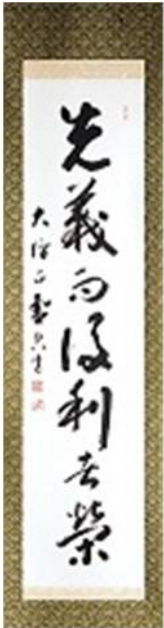 先義而後利者榮